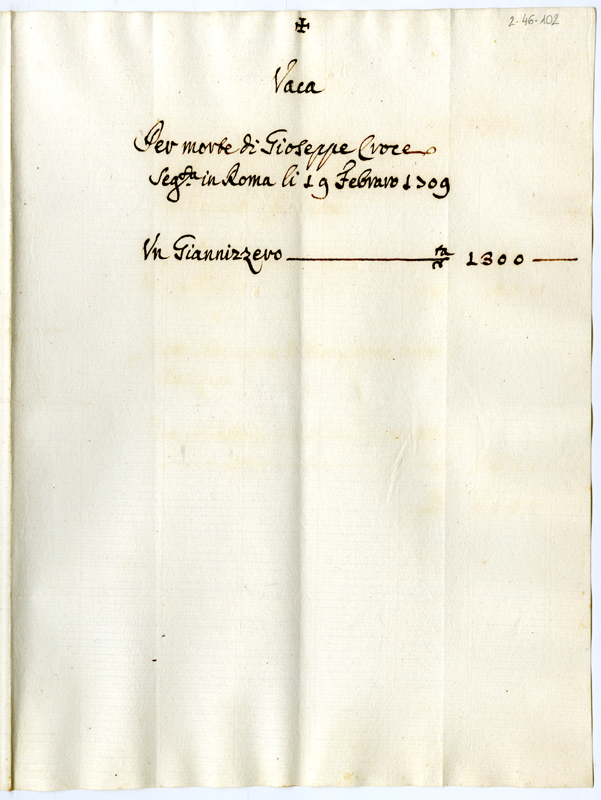 2-46-102
✠
Vaca
Per morte di Gioseppe Croce
Seg.ta in Roma li 19 Febraro 1709
Vn Giannizzero 1300